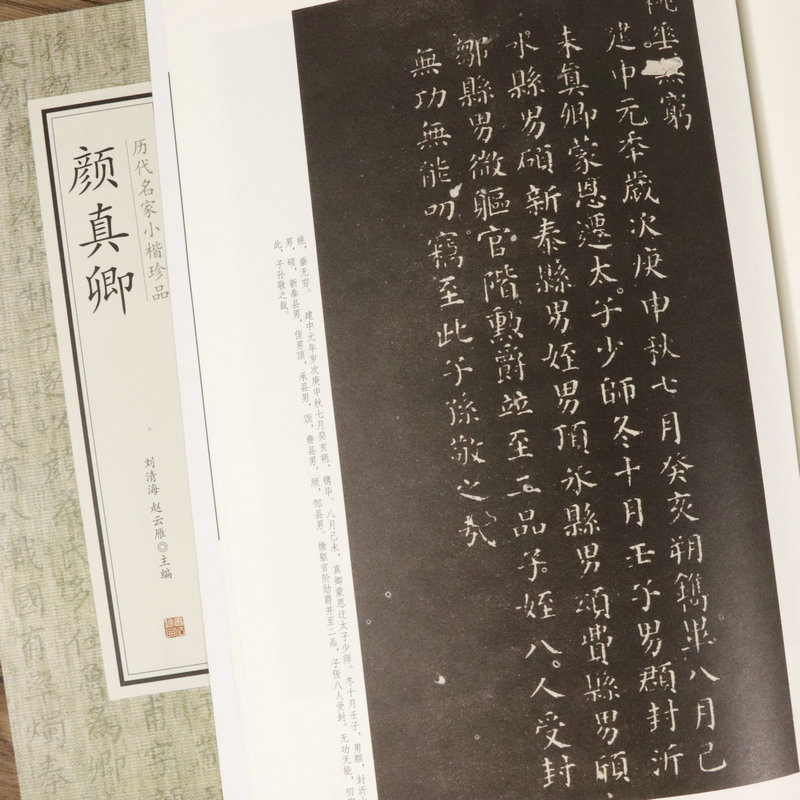 历代名家小楷珍品
颜真卿
刘清海 赵云雁◎主编
祧垂無窮
建中元秊歲次庚申秋七月癸亥朔鐫畢八月己
未真卿蒙恩遷太子少師冬十月壬子男頵封沂
水縣男碩新泰縣男姪男頂承縣男頌費縣男頎
鄒縣男微軀官階勳爵並至二品子姪八人受封
無功無能叨竊至此子孫敬之哉
祧，垂无穷。 建中元年岁次庚申秋七月癸亥朔，镌毕。八月己未，真卿蒙恩迁太子少师。冬十月壬子，男頵，封沂
男，硕，新泰县男，侄男顶，承县男，颂，费县男，颀，邹县男。微躯官阶勋爵并至二品，子侄八人受封。无功无能，叨
此，子孙敬之哉。